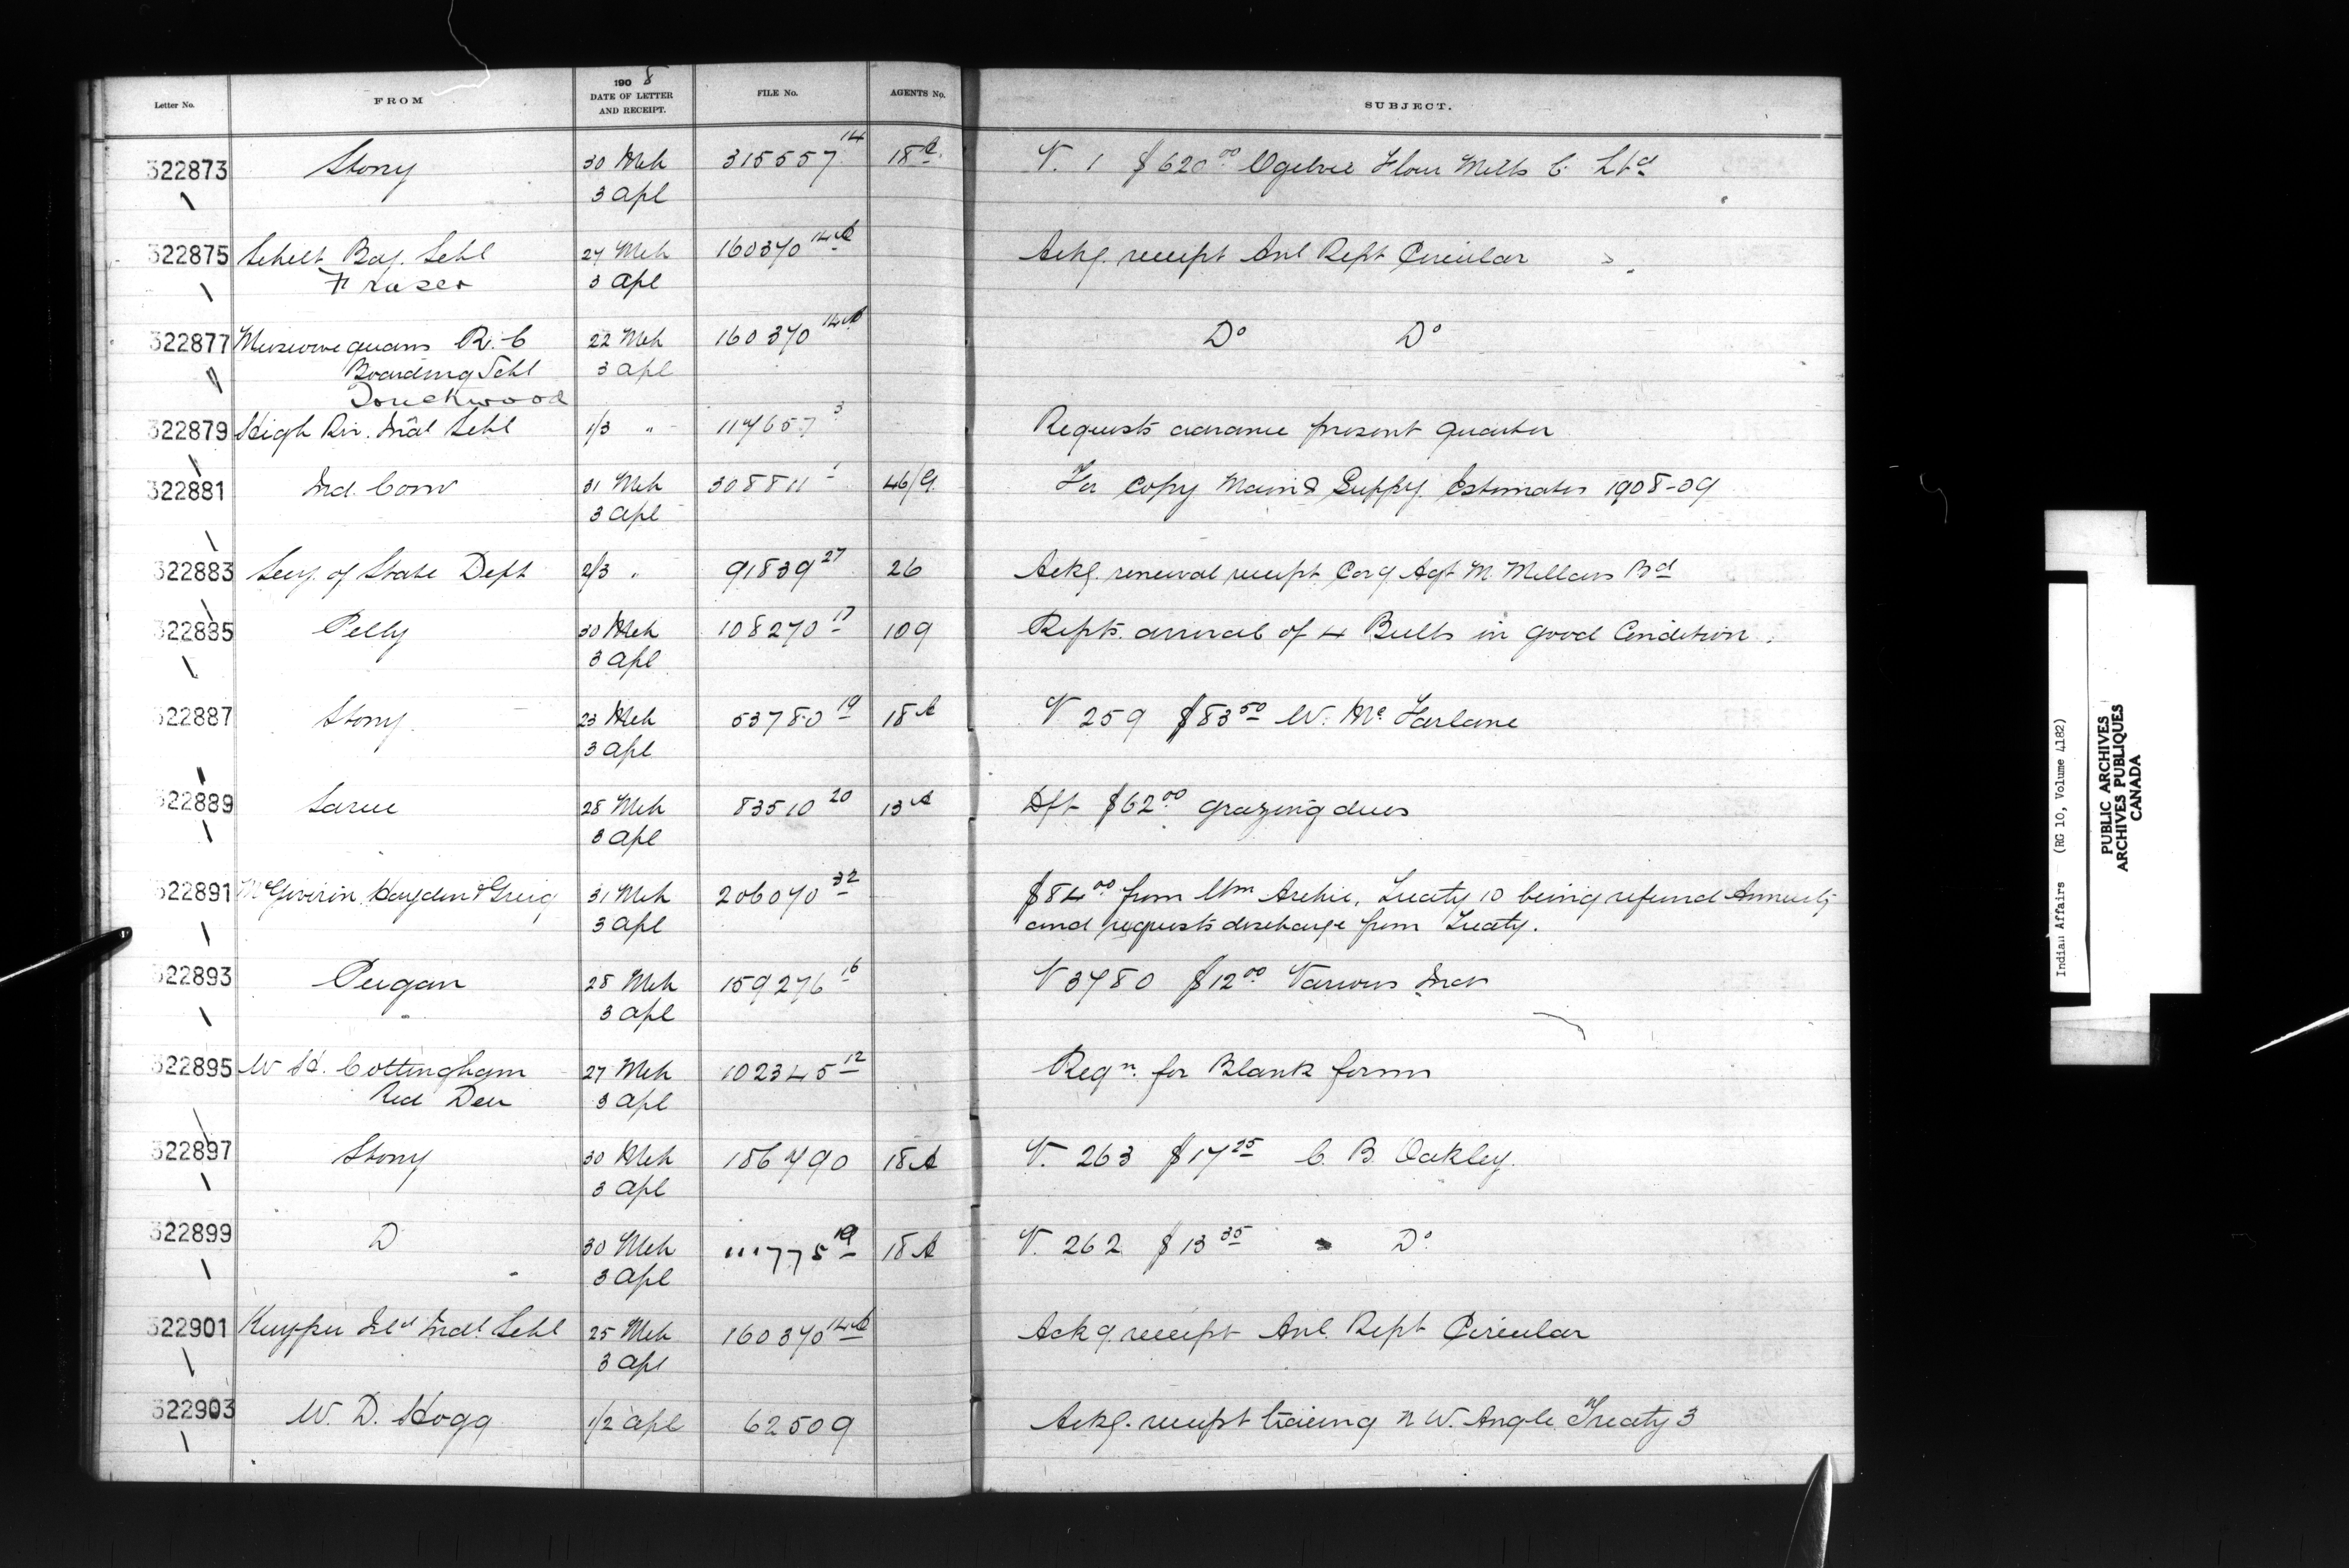 Letter No. FROM 1908 DATE OF LETTER AND RECEIPT. FILE No. AGENTS No. SUBJECT.
322873 Stony 30 Mch 315557 14 18 A V. 1 $620 00 Ogilvie Flour Mills C. Ltd
3 Apl
322875 Sehelt Bdg. Schl 27 Mch 160370 14 A Ackg. receipt Anl Rept Circular
Fraser 3 Apl
322877 Muscowequans R.C 22 Mch 160370 14 A Do Do
Boarding Schl 3 Apl
Touchwood
322879 High Riv. Indl Schl 1/3 " 117657 3 Requests advance present quarter
322881 Ind. Comr 31 Mch 308811 1 46/G For copy Main & Supply Estimates 1908-09
3 Apl
322883 Secy. of State Dept 2/3 " 91839 27 26 Ackg. renewal receipt Corg Agt McMillans Bd
322885 Pelly 30 Mch 108270 17 109 Repts. arrival of 4 Bulls in good Condition.
3 Apl
322887 Stony 23 Mch 53780 19 18 A V 259 $83 50 W. McFarlane
3 Apl
322889 Sarcee 28 Mch 83510 20 13 A Dft $62 00 grazing dues
3 Apl
322891 McGiverin Hayden & Greig 31 Mch 206070 32 $84 00 from Wm Archie, Treaty 10 being refund Annuity
3 Apl and requests discharge from Treaty.
322893 Peigan 28 Mch 159276 16 V 3780 $12 00 Various Inds
3 Apl
322895 W H. Cottingham 27 Mch 102345 12 Reqn. for Blank forms
Red Deer 3 Apl
322897 Stony 30 Mch 186790 18 A V. 263 $17 25 C. B. Oakley.
3 Apl
322899 D 30 Mch 111775 19 18 A V. 262 $13 35 Do
3 Apl
322901 Kuyper Isld Indl Schl 25 Mch 160370 14 A Ackg receipt Anl. Rept Circular
3 Apl
322903 W. D. Hogg 1/2 Apl 62509 Ackg. receipt tracing N W. Angle Treaty 3
Indian Affairs (RG 10, Volume 4182)
PUBLIC ARCHIVES
ARCHIVES PUBLIQUES
CANADA